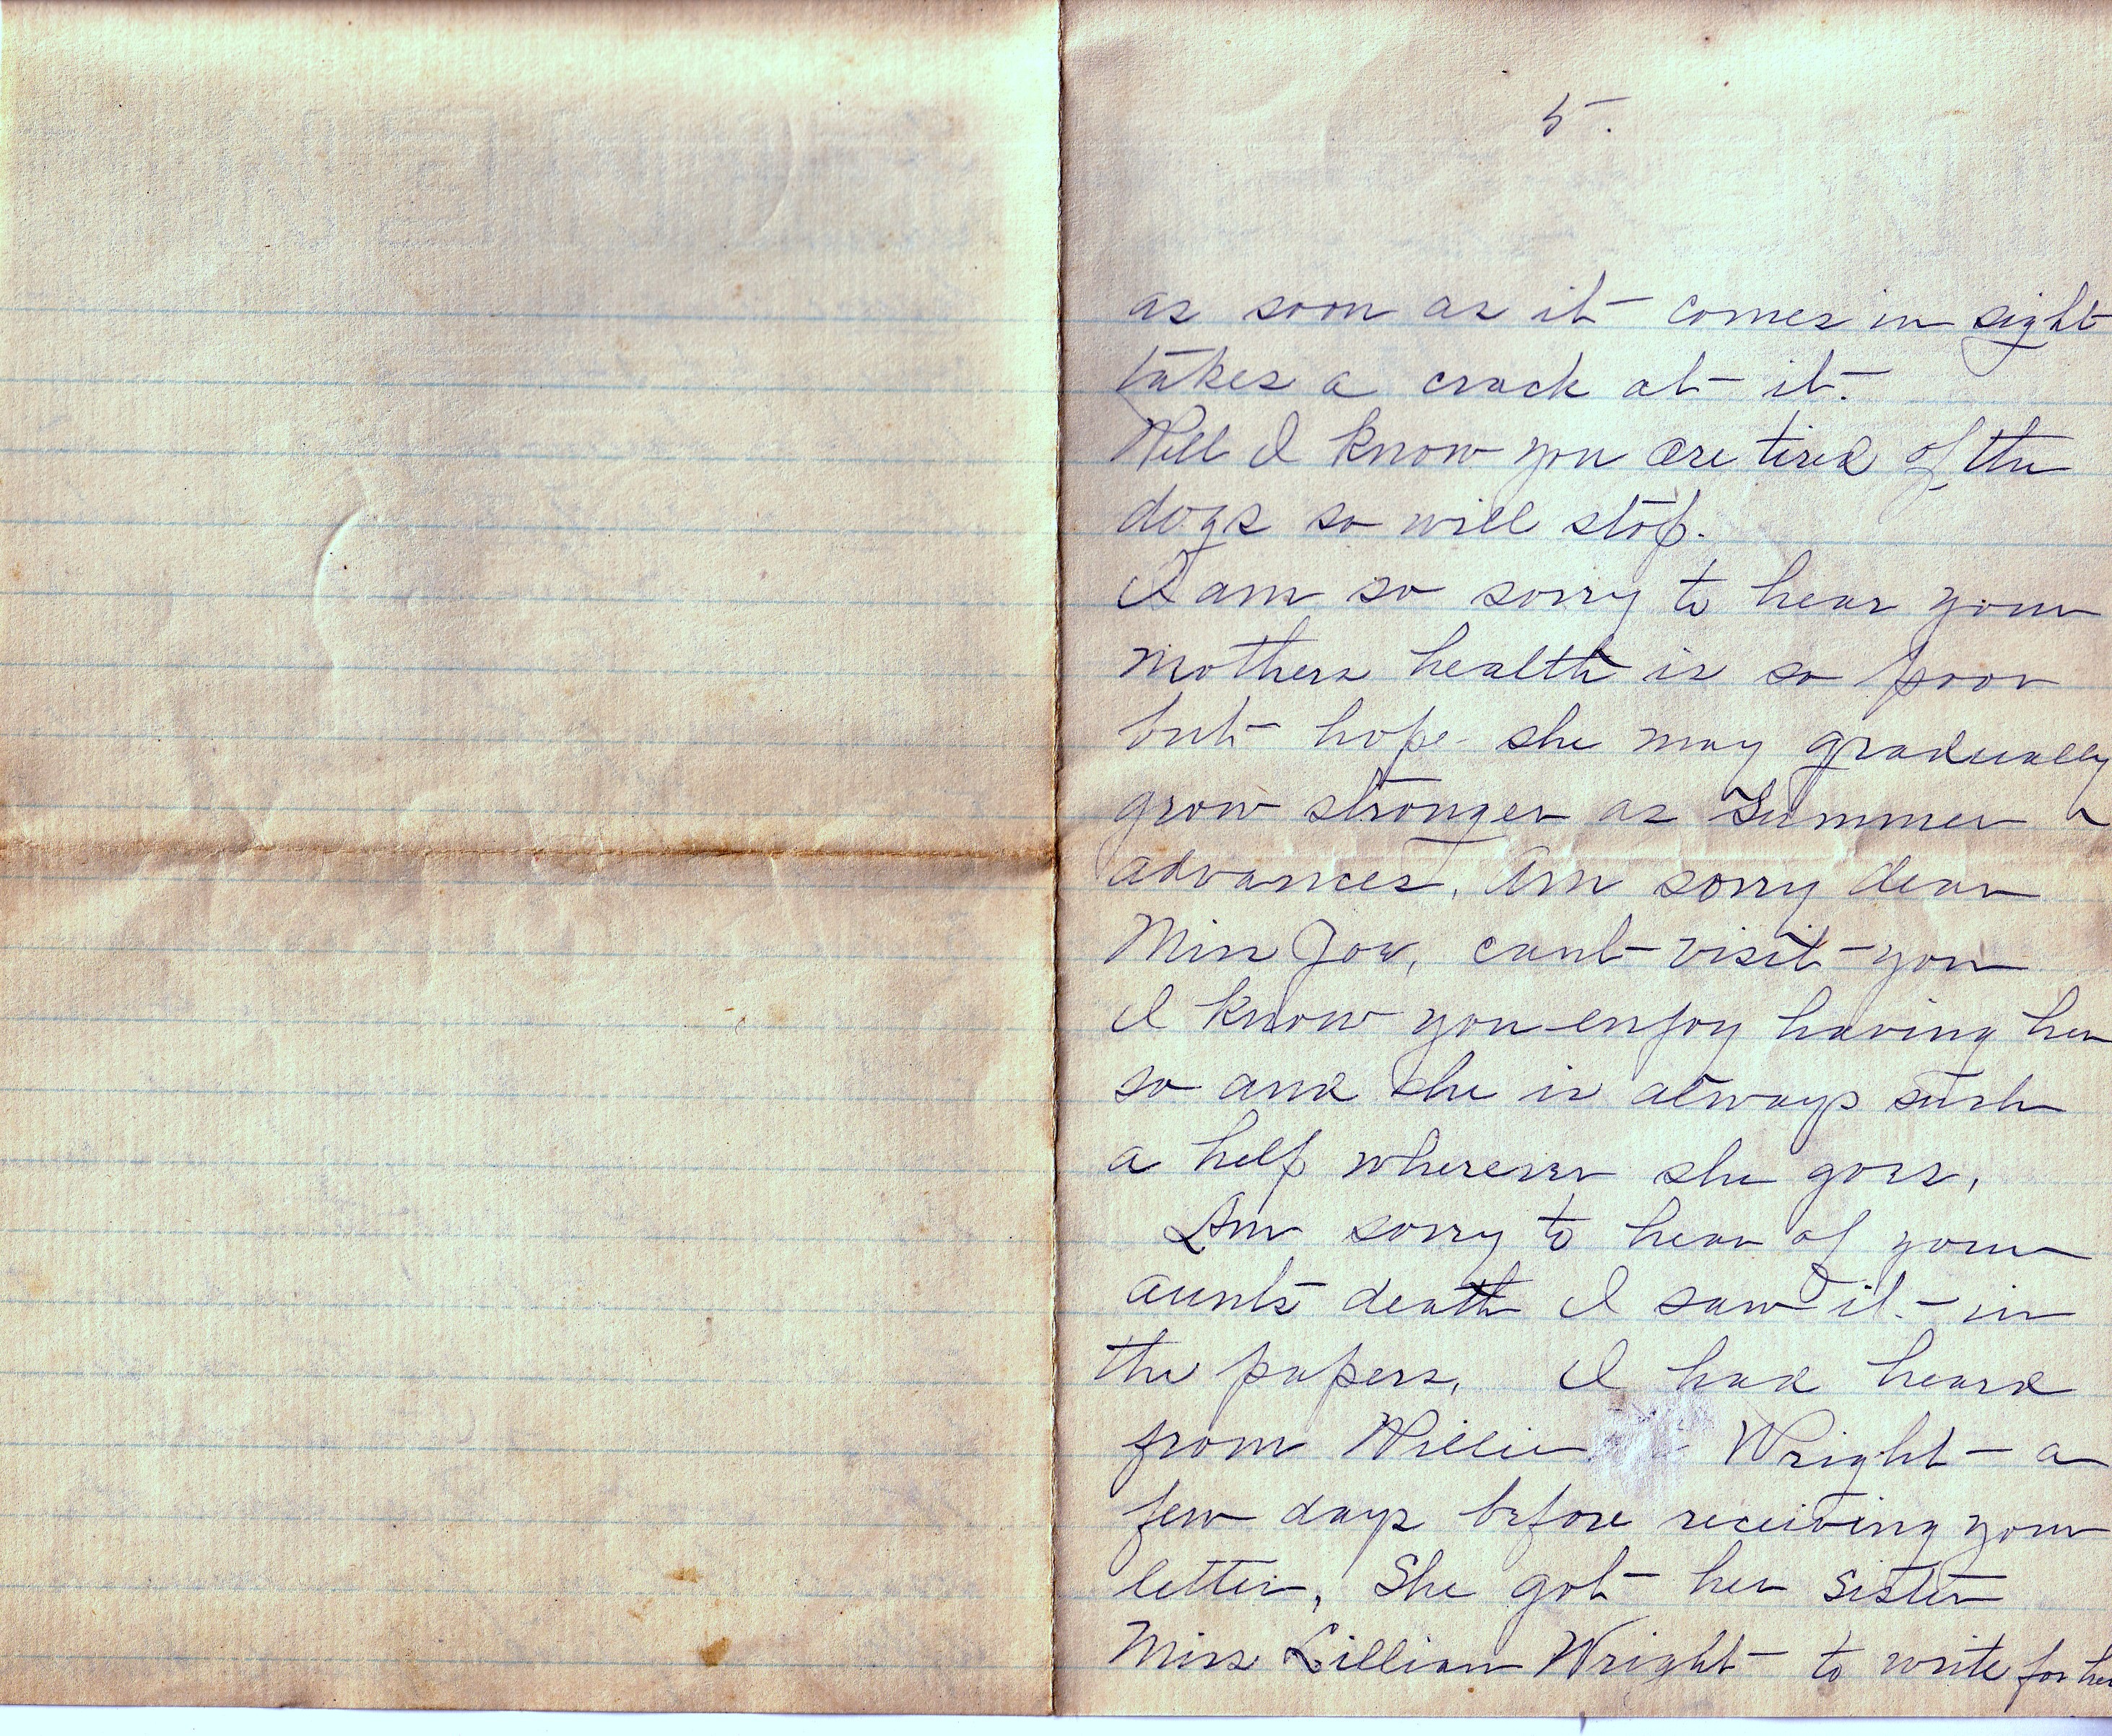 5.
as soon as it comes in sight
takes a crack at it.
Well I know you are tired of the
dogs so will stop.
I am so sorry to hear your
mothers health is so poor
but hope she may gradually
grow stronger as Summer
advances. Am sorry dear
Miss Joe, cant visit you
I know you enjoy having her
so and she is always such
a help wherever she goes,
Am sorry to hear of your
aunts death I saw it in
the papers, I had heard
from Willie Wright a
few days before receiving your
letter, She got her sister
Miss Lillian Wright to write for her